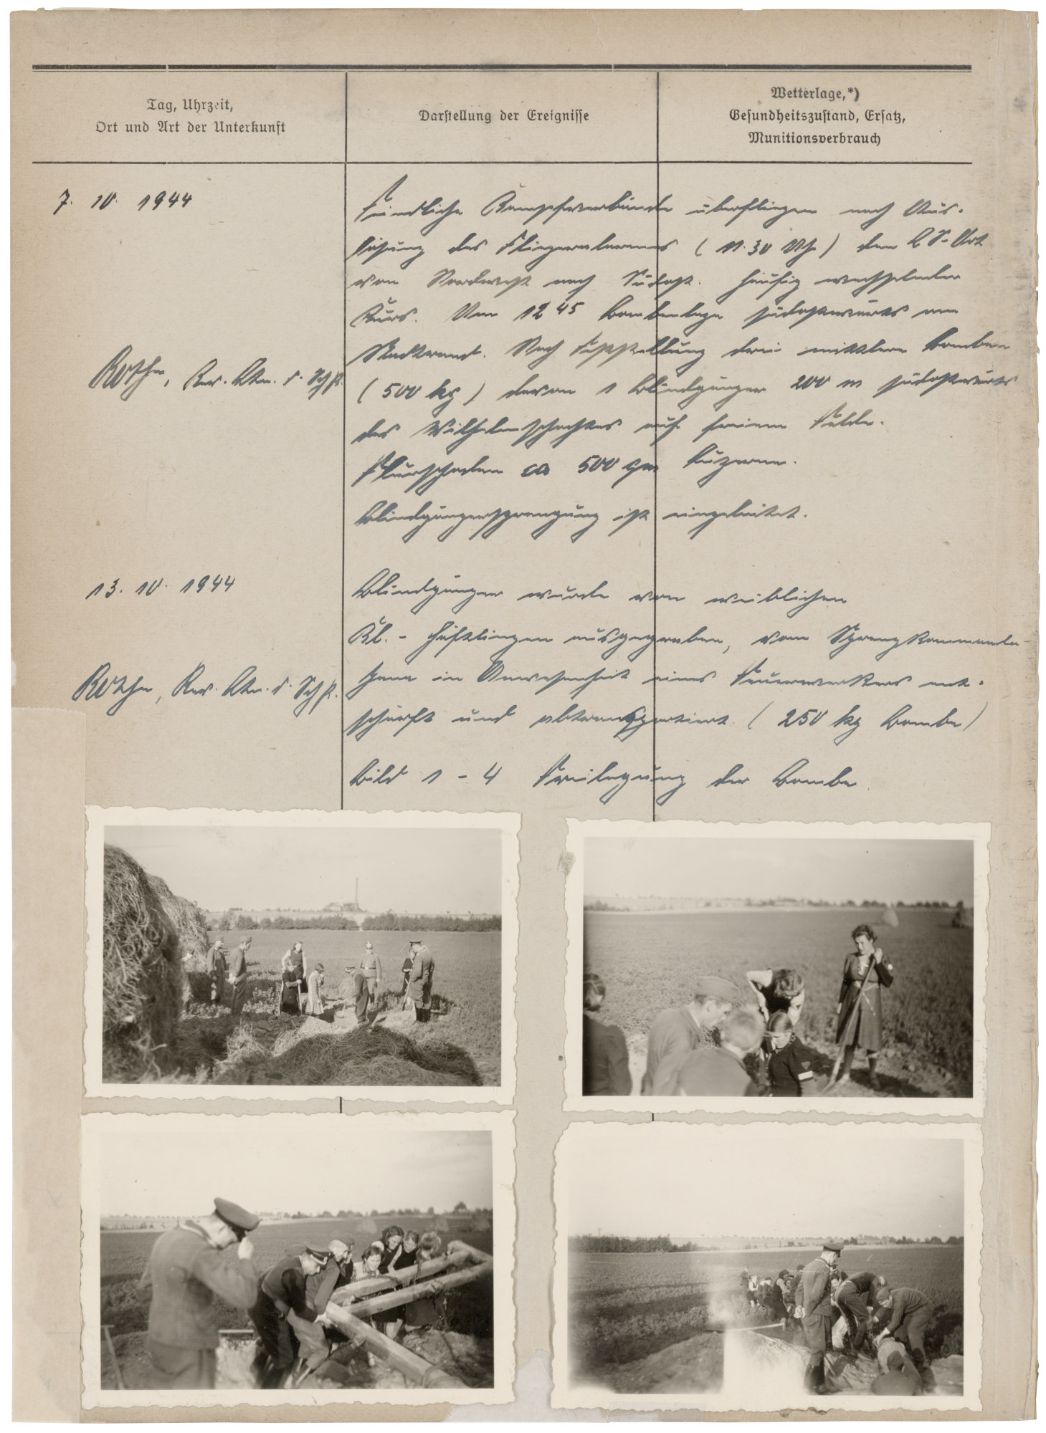 Tag, Uhrzeit,
Ort und Art der Unterkunft
Darstellung der Ereignisse
Wetterlage,*)
Gesundheitszustand, Ersatz,
Munitionsverbrauch
7. 10. 1944
Feindliche Kampfverbände überfliegen nach Aus-
lösung des Fliegeralarmes (11.30 Uhr) den LS-Ort
von Nordwest nach Südost. Häufig wechselnder
Kurs. Um 12 45 Bombenlage südostwärts am
Stadtrand. Nach Feststellung drei mittlere Bomben
Rothe,
(500 kg) davon 1 Blindgänger 200 m südostwärts
des Wilhelmschachtes auf freiem Felde.
Flurschaden ca 500 qm Luzerne.
Blindgängersprengung ist eingeleitet.
13. 10. 1944
Blindgänger wurde von weiblichen
KL.-Häftlingen ausgegraben, vom Sprengkommando
Rothe,
in Anwesenheit eines Feuerwerkers ent-
schärft und abtransportiert. (250 kg Bombe)
Bild 1 - 4 Freilegung der Bombe.